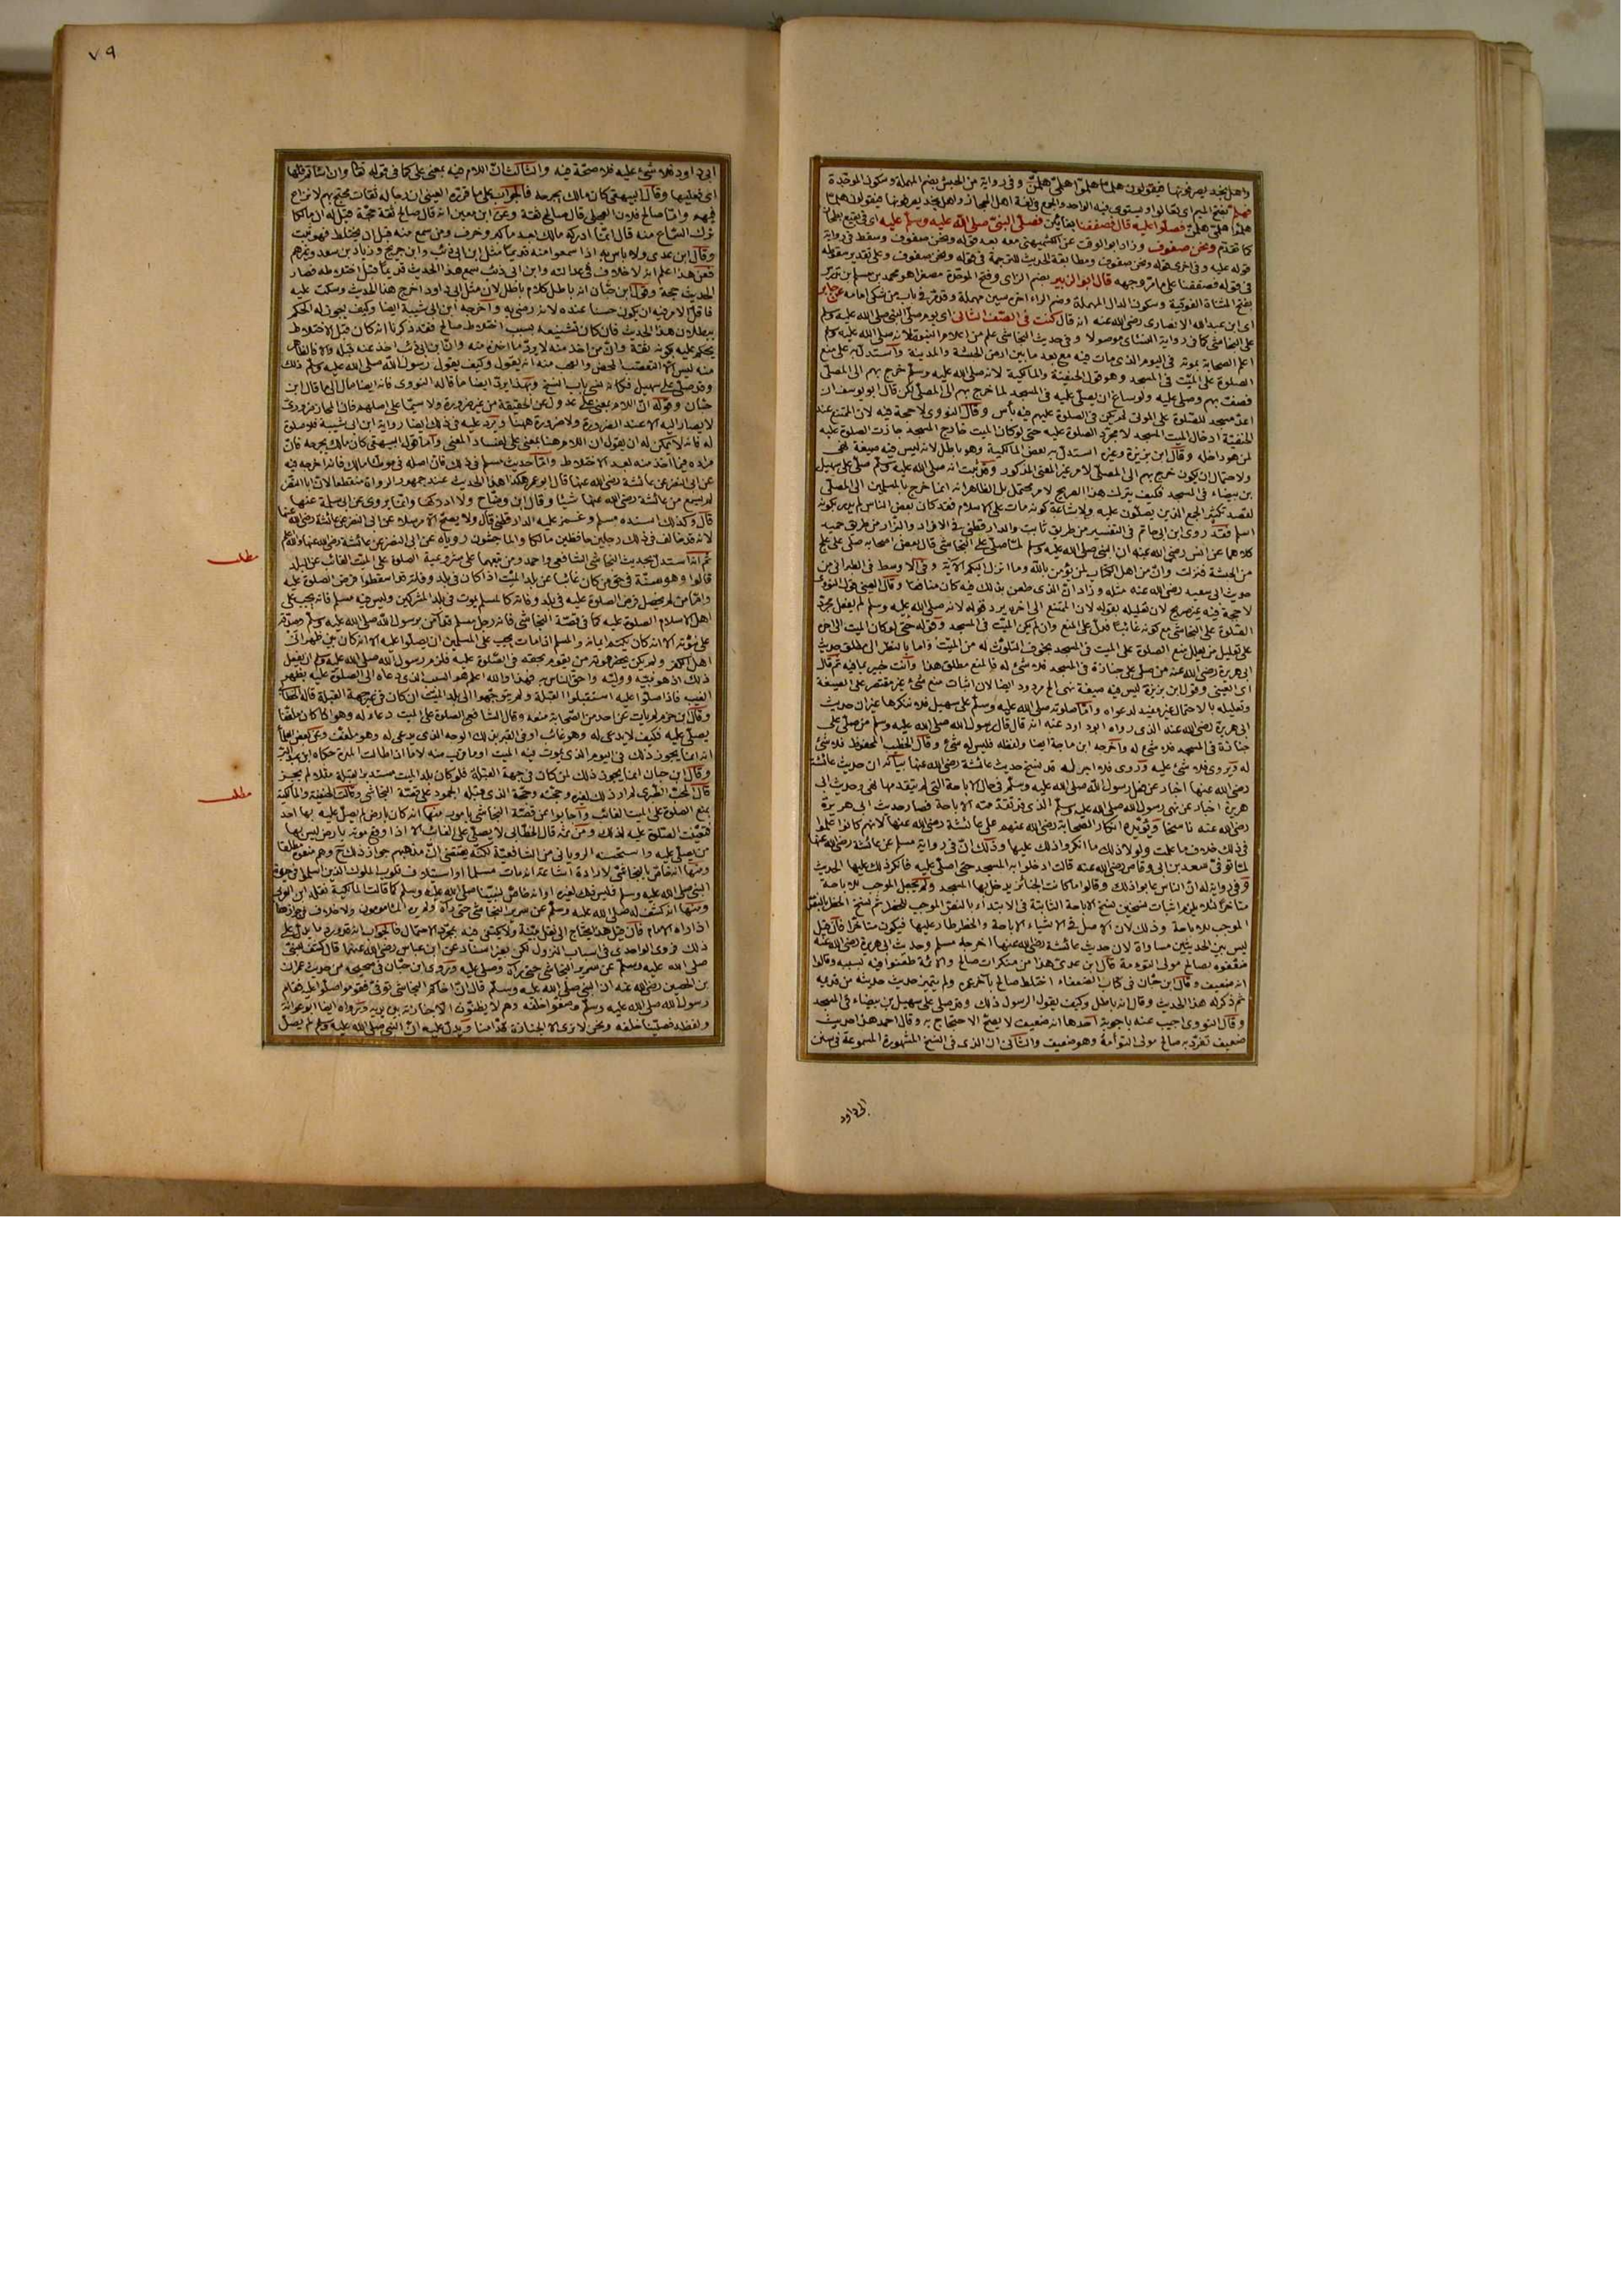 واهل نجد يصرفونها فيقولون هلمّا هلمّوا هلمّى هلممن وفى رواية من الحبش بضم المهملة وسكون الموحدة
فهلم بفتح الميم اى تعالوا ويستوى فيه الواحد والجمع فى لغة اهل الحجاز واهل نجد يصرفونها فيقولون هلمّا
هلموا هلمى هلمن فصلّوا عليه قال فصففنا بفائين فصلّى النبىّ صلى الله عليه وسلم عليه
كما تقدم ونحن صفوف وزاد ابو الوقت عن الكشميهنى معه بعد قوله ونحن صفوف وسقط فى رواية
قوله عليه وفى اخرى قوله ونحن صفوف ومطابقة الحديث للترجمة فى قوله ونحن صفوف وعلى تقدير سقوطه
فى قوله فصففنا على ما مرّ وجهه قال ابو الزبير بضم الزاى وفتح الموحدة مصغرا هو محمد بن مسلم بن تدرس
بفتح المثناة الفوقية وسكون الدال المهملة وضم الراء اخره سين مهملة وقد مرّ فى باب من شكى امامه عن جابر
اى ابن عبد الله الانصارى رضى الله عنه انه قال كنت فى الصّف الثانى اى يوم صلى النبى صلى الله عليه وسلم
على النجاشى كما فى رواية النسائى موصولا وفى حديث النجاشى علم من اعلام النبوة لانه صلى الله عليه وسلم
اعلم الصحابة بموته فى اليوم الذى مات فيه مع بعد ما بين ارض الحبشة والمدينة واستدل به على منع
الصلوة على الميّت فى المسجد وهو قول الحنيفية والمالكية لانه صلى الله عليه وسلم خرج بهم الى المصلّى
فصف بهم وصلى عليه ولو ساغ ان يصلّى عليه فى المسجد لما خرج بهم الى المصلّى لكن قال ابو يوسف ان
اعدّ مسجد للصّلوة على الموتى لم يكن فى الصلوة عليهم فيه بأس وقال النووى لا حجة فيه لان الممتنع عند
الحنفيّة ادخال الميت المسجد لا مجرّد الصلوة عليه حتى لو كان الميت خارج المسجد جازت الصلوة عليه
لمن هو داخله وقال ابن بزيزة وغيره استدل به بعض المالكية وهو باطل لانه ليس فيه صيغة نهى
ولاحتمال ان يكون خرج بهم الى المصلّى لامر غير المعنى المذكور وقد ثبت انه صلى الله عليه وسلم صلّى على سهيل
بن بيضاء فى المسجد فكيف يترك هذا الصريح لامر محتمل بل الظاهر انه انما خرج بالمسلمين الى المصلّى
لقصد تكثير الجمع الذين يصلون عليه ولاشاعة كونه مات على الاسلام فقد كان بعض الناس لم يدر كونه
اسلم فقد روى ابن ابى حاتم فى التفسير من طريق ثابت والدار قطنى فى الافراد والبزار من طريق حميد
كلاهما عن انس رضى الله عنه ان النبى صلى الله عليه وسلم لما صلّى على النجاشى قال بعض اصحابه صلى على علج
من الحبشة فنزلت وانّ من اهل الكتاب لمن يؤمن بالله وما انزل اليكم الاية وفى الاوسط فى الطبرانى من
حديث ابى سعيد رضى الله عنه مثله وزاد انّ الذى طعن بذلك فيه كان منافقا وقال العينى قول النووى
لا حجة فيه غير صريح لان تعليله بقوله لان الممتنع الى اخره يرد قوله لانه صلى الله عليه وسلم لم يفعل مجرّد
الصّلوة على النجاشى مع كونه غائبا فدلّ على المنع وان لم يكن الميّت فى المسجد وقوله حتى لو كان الميت الى اخره
على تعليل من يعلل منع الصلوة على الميت فى المسجد بخوف التلوّث له من الميّت واما بالنظر الى مطلق حديث
ابى هريرة رضى الله عنه من صلى على جنازة فى المسجد فلا شئ له فالمنع مطلق هذا وانت خبير بما فيه ثم قال
اى العينى وقول ابن بزيزة ليس فيه صيغة نهى الخ مردود ايضا لان اثبات منع شئ غير مقتصر على الصيغة
وتعليله بالاحتمال غير مفيد لدعواه وامّا صلوته صلى الله عليه وسلم على سهيل فلا ننكرها غير ان حديث
ابى هريرة رضى الله عنه الذى رواه ابو داود عنه انه قال قال رسول الله صلى الله عليه وسلم من صلّى على
جنازة فى المسجد فلا شئ له واخرجه ابن ماجة ايضا ولفظه فليس له شئ وقال الخطيب المحفوظ فلا شئ
له ويروى فلا شئ عليه وروى فلا اجر له قد نسخ حديث عائشة رضى الله عنها بيانه ان حديث عائشة
رضى الله عنها اخبار عن فعل رسول الله صلى الله عليه وسلم فى حال الاباحة التى لم يتقدمها نهى وحديث ابى
هريرة اخبار عن نهى رسول الله صلى الله عليه وسلم الذى قد تقدمته الاباحة فصار حديث ابى هريرة
رضى الله عنه ناسخا ويؤيده انكار الصّحابة رضى الله عنهم على عائشة رضى الله عنها لانهم كانوا علموا
فى ذلك خلاف ما علمت ولولا ذلك ما انكروا ذلك عليها وذلك انّ فى رواية مسلم عن عائشة رضى الله عنها
لمّا توفىّ سعد بن ابى وقاص رضى الله عنه قالت ادخلوا به المسجد حتى اصلّى عليه فانكر ذلك عليها الحديث
وفى رواية له انّ الناس عابوا ذلك وقالوا ما كانت الجنائز يدخل بها المسجد ولم يجعل الموجب للاباحة
متاخرا لئلا يلزم اثبات نسخين نسخ الاباحة الثابتة فى الابتداء بالنصّ الموجب للحظر ثم نسخ الحظر بالنصّ
الموجب للاباحة وذلك لان الاصل فى الاشياء الاباحة والحظر طار عليها فيكون متاخرا فان قيل
ليس بين الحديثين مساواة لان حديث عائشة رضى الله عنها اخرجه مسلم وحديث ابى هريرة رضى الله عنه
ضعّفوه بصالح مولى التوءمة قال ابن عدىّ هذا من منكرات صالح والائمة طعنوا فيه بسببه وقالوا
انه ضعيف وقال ابن حبّان فى كتاب الضعفاء اختلط صالح باخره ولم يتميز حديث حديثه من قديمه
ثم ذكر له هذا الحديث وقال انه باطل وكيف يقول الرسول ذلك وقد صلى على سهيل بن بيضاء فى المسجد
وقال النووى اجيب عنه باجوبة احدها انه ضعيف لا يصحّ الاحتجاج به وقال احمد هذا حديث
ضعيف تفرّد به صالح مولى التوأمة وهو ضعيف والثانى ان الذى فى النسخ المشهورة المسموعة فى سنن
ابى داود
٧٩
ابى داود فلا شئ عليه فلا صحّة فيه والثالث انّ اللام فيه بمعنى على كما فى قوله تعالى وان اسأتم فلها
اى فعليها وقال البيهقى كان مالك يجرحه فالجواب على ما قرره العينى ان رجاله ثقات محتج بهم لا نزاع
فيهم وامّا صالح فان العجلى قال صالح ثقة وعن ابن معين انه قال صالح ثقة حجّة قيل له ان مالكا
ترك السّماع منه قال انمّا ادركه مالك بعد ما كبر وخرف ومن سمع منه قبل ان يختلط فهو ثبت
وقال ابن عدى ولا باس به اذا سمعوا منه قديما مثل ابن ابى ذئب وابن جريج وزياد بن سعد وغيرهم
فعن هذا علم انه لا خلاف فى عدالته وابن ابى ذئب سمع هذا الحديث قديما قبل اختلاطه فصار
الحديث حجة وقول ابن حبّان انه باطل كلام باطل لان مثل ابى داود اخرج هذا الحديث وسكت عليه
فاقل الامر فيه ان يكون حسنا عنده لانه رضى به واخرجه ابن ابى شيبة ايضا وكيف يجوز له الحكم
ببطلان هذا الحديث فان كان تشنيعه بسبب اختلاط صالح فقد ذكرنا انه كان قبل الاختلاط
يحكم عليه بكونه ثقة وانّ من اخذ منه لا يردّ ما اخذه منه وانّ ابن ابى ذئب اخذ عنه قبله والا فالظاهر
منه ليس الا التعصّب المحض والعجب منه انه يقول وكيف يقول رسول الله صلى الله عليه وسلم ذلك
وقد صلّى على سهيل فكانه نسى باب النسخ وبهذا يردّ ايضا ما قاله النووى فانه ايضا مال الى ما قال ابن
حبّان وقوله انّ اللام بمعنى على عدول عن الحقيقة من غير ضرورة ولا سيمّا على اصلهم فان المجاز ضرورىّ
لا يصار اليه الا عند الضرورة ولا ضرورة ههنا ويردّ عليه فى ذلك ايضا رواية ابن ابى شيبة فلا صلوة
له فانه لا يمكن له ان يقول ان اللام هنا بمعنى على لفساد المعنى وامّا قول البيهقى كان مالك يجرحه فان
مراده فيما اخذ منه بعد الاختلاط وامّا حديث مسلم فى ذلك فان اصله فى موطا مالك فانه اخرجه فيه
عن ابى النضر عن عائشة رضى الله عنها قال ابو عمر هكذا هذا الحديث عند جمهور الرواة منقطعا لانّ ابا النضر
لم يسمع من عائشة رضى الله عنها شيئا وقال ابن وضّاح ولا ادركها وانما يروى عن ابى سلمة عنها
قال وكذلك اسنده مسلم وغمز عليه الدار قطنى قال ولا يصحّ الا مرسلا عن ابى النضر عن عائشة رضى الله عنها
لانه قد خالف فى ذلك رجلين حافظين مالكا والماجشون روياه عن ابى النضر عن عائشة رضى الله عنها والله اعلم
ثم انه استدل بحديث النجاشى الشافعى واحمد ومن تبعهما على مشروعية الصلوة على الميّت الغائب عن البلد
مطلب
قالوا وهو سنّة فى حق من كان غائبا عن بلد الميّت اذا كان فى بلد وفاته قد اسقطوا فرض الصلوة عليه
وامّا من لم يحصل فرض الصلوة عليه فى بلد وفاته كالمسلم يموت فى بلد المشركين وليس فيه مسلم فانه يجب على
اهل الاسلام الصلوة عليه كما فى قصّة النجاشى فانه رجل مسلم قد آمن برسول الله صلى الله عليه وسلم وصدّقه
على نبوّته الا انه كان يكتم ايمانه والمسلم اذا مات يجب على المسلمين ان يصلوا عليه الا انه كان بين ظهرانى
اهل الكفر ولم يكن بحضرته من يقوم بحقه فى الصّلوة عليه فلزم رسول الله صلى الله عليه وسلم ان يفعل
ذلك اذ هو نبيه ووليّه واحق الناس به فهذا والله اعلم هو السبب الذى دعاه الى الصلوة عليه بظهر
الغيب فاذا صلّوا عليه استقبلوا القبلة ولم يتوجهوا الى بلد الميّت ان كان فى غير جهة القبلة قاله الخطابى
وقال ابن حزم لم يأت عن احد من الصّحابة منعه وقال الشافعى الصلوة على الميت دعاء له وهو اذا كان ملففا
يصلّى عليه فكيف لا يدعى له وهو غائب او فى القبر بذلك الوجه الذى يدعى له وهو ملفف وعن بعض العلماء
انه انما يجوز ذلك فى اليوم الذى يموت فيه الميت او ما قرب منه لا ما اذا طالت المدة حكاه ابن عبد البر
وقال ابن حبان انما يجوز ذلك لمن كان فى جهة القبلة فلو كان بلد الميت مستدبر القبلة مثلا لم يجز
قال المحبّ الطبرى لم ار ذلك لغيره وحجته وحجّة الذى قبله الجمود على قصّة النجاشى وقالت الحنفيّة والمالكية
مطلب
بمنع الصلوة على الميت الغائب واجابوا عن قصّة النجاشى بامور منها انه كان بارض لم يصلّ عليه بها احد
فتعيّنت الصّلوة عليه لذلك ومن ثمه قال الخطّابى لا يصلّى على الغائب الا اذا وقع موته بارض ليس بها
من يصلّى عليه واستحسنه الرويانى من الشافعيّة لكنّه يقتضى انّ مذهبهم جواز ذلك ح وهم منعوه مطلقا
ومنها انه خاصّ بالنجاشىّ لارادة اشاعة انه مات مسلما او استيلاف قلوب الملوك الذين اسلموا فى حيوة
النبى صلى الله عليه وسلم فليس ذلك لغيره او انه خاصّ بنبيّنا صلى الله عليه وسلم كما قالت المالكية نقله ابن العربى
ومنها انه كشف له صلى الله عليه وسلم عن سرير النجاشى حتى رآه ولم يره المأمومون ولا خلاف فى جوازها
اذا راه الامام فان قيل هذا يحتاج الى نقل بيّنة ولا يكتفى فيه بمجرّد الاحتمال فالجواب انه قد ورد ما يدلّ على
ذلك فروى الواحدى فى اسباب النزول لكن بغير اسناد عن ابن عباس رضى الله عنهما قال كشف للنبى
صلى الله عليه وسلم عن سرير النجاشى حتى رآه وصلى عليه وروى ابن حبّان فى صحيحه من حديث عمران
بن الحصين رضى الله عنه ان النبى صلى الله عليه وسلم قال انّ اخاكم النجاشى توفىّ فقوموا صلّوا عليه فقام
رسول الله صلى الله عليه وسلم وصفّوا خلفه وهم لا يظنّون الا جنازته بين يديه ورواه ايضا ابو عوانة
ولفظه فصلينا خلفه ونحن لا نرى الا الجنازة قدّامنا ويدلّ عليه انّ النبى صلى الله عليه وسلم لم يصلّ